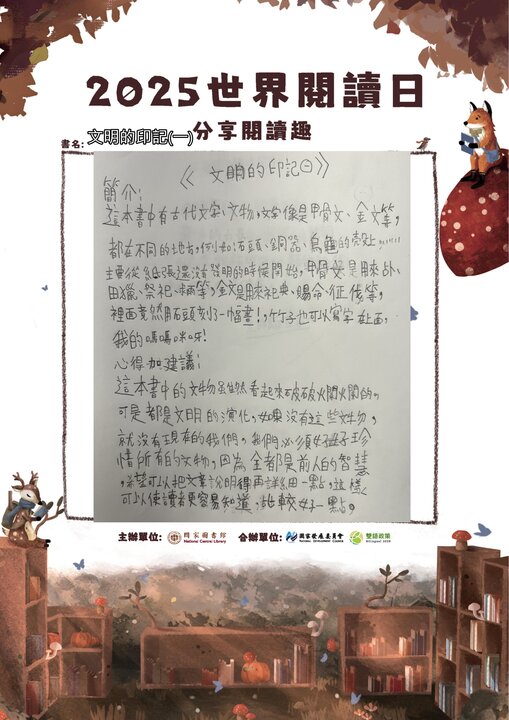 2025世界閱讀日
分享閱讀趣
書名: 文明的印記(一)
《 文明的印記㊀》
簡介:
這本書中有古代文字、文物,文字像是甲骨文、金文等,
都在不同的地方,例如:石頭、銅器、烏龜的殼……
主要從紙張還沒有發明的時候開始,甲骨文是用來占卜、
田獵、祭祀、等,金文是用來祀典、賜命、征伐等,
裡面竟然用石頭刻了一幅畫!,竹子也可以寫字在上面,
我的嗎嗎咪呀!
心得加建議:
這本書中的文物雖然看起來破破爛爛的,
可是都是文明的演化,如果沒有這些文物,
就沒有現在的我們,我們必須好好珍
惜所有的文物,因為全都是前人的智慧,
希望可以把文章說明得再詳細一點,這樣
可以使讀者更容易知道,比較好一點。
主辦單位: 國家圖書館 National Central Library 合辦單位: 國家發展委員會 NATIONAL DEVELOPMENT COUNCIL 雙語政策 Bilingual 2030